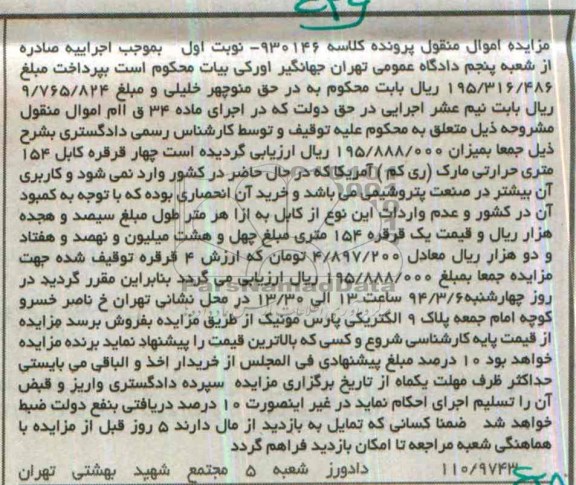 مزایده اموال منقول پرونده کلاسه ۹۳۰۱۴۶- نوبت اول بموجب اجراییه صادره
از شعبه پنجم دادگاه عمومی تهران جهانگیر اورکی بیات محکوم است بپرداخت مبلغ
۱۹۵/۳۱۶/۴۸۶ ریال بابت محکوم به در حق منوچهر خلیلی و مبلغ ۹/۷۶۵/۸۲۴
ریال بابت نیم عشر اجرایی در حق دولت که در اجرای ماده ۳۴ ق اام اموال منقول
مشروحه ذیل متعلق به محکوم علیه توقیف و توسط کارشناس رسمی دادگستری بشرح
ذیل جمعا بمیزان ۱۹۵/۸۸۸/۰۰۰ ریال ارزیابی گردیده است چهار قرقره کابل ۱۵۴
متری حرارتی مارک (ری کم) آمریکا که در حال حاضر در کشور وارد نمی شود و کاربری
آن بیشتر در صنعت پتروشیمی می باشد و خرید آن انحصاری بوده که با توجه به کمبود
آن در کشور و عدم واردات این نوع از کابل به ازا هر متر طول مبلغ سیصد و هجده
هزار ریال و قیمت یک قرقره ۱۵۴ متری مبلغ چهل و هشت میلیون و نهصد و هفتاد
و دو هزار ریال معادل ۴/۸۹۷/۲۰۰ تومان که ارزش ۴ قرقره توقیف شده جهت
مزایده جمعا بمبلغ ۱۹۵/۸۸۸/۰۰۰ ریال ارزیابی می گردد بنابراین مقرر گردید در
روز چهارشنبه ۹۴/۳/۶ ساعت ۱۳ الی ۱۳/۳۰ در محل نشانی تهران خ ناصر خسرو
کوچه امام جمعه پلاک ۹ الکتریکی پارس موتیک از طریق مزایده بفروش برسد مزایده
از قیمت پایه کارشناسی شروع و کسی که بالاترین قیمت را پیشنهاد نماید برنده مزایده
خواهد بود ۱۰ درصد مبلغ پیشنهادی فی المجلس از خریدار اخذ و الباقی می بایستی
حداکثر ظرف مهلت یکماه از تاریخ برگزاری مزایده سپرده دادگستری واریز و قبض
آن را تسلیم اجرای احکام نماید در غیر اینصورت ۱۰ درصد دریافتی بنفع دولت ضبط
خواهد شد ضمنا کسانی که تمایل به بازدید از مال دارند ۵ روز قبل از مزایده با
هماهنگی شعبه مراجعه تا امکان بازدید فراهم گردد
۱۱۰/۹۷۴۳ دادورز شعبه ۵ مجتمع شهید بهشتی تهران